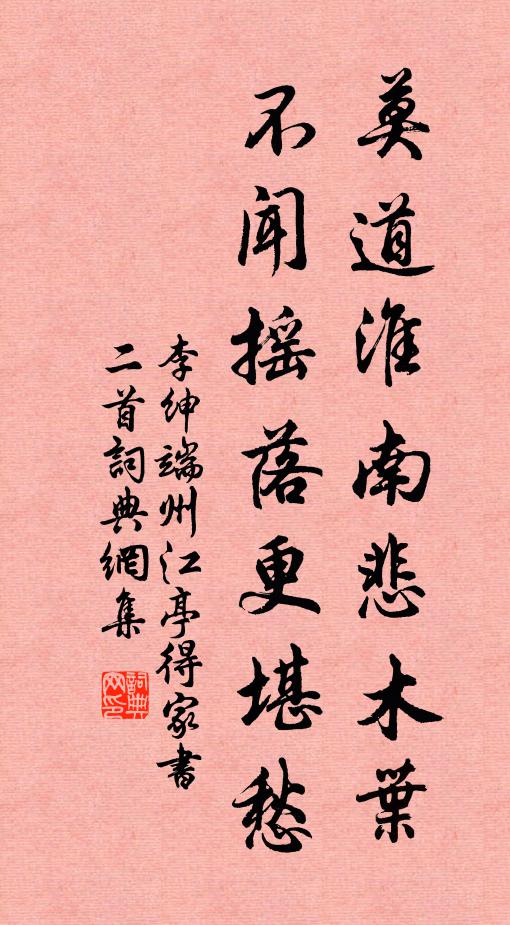 莫道淮南悲木葉
不聞搖落更堪愁
李紳端州江亭得家書
二首詞典網集
詞典網印